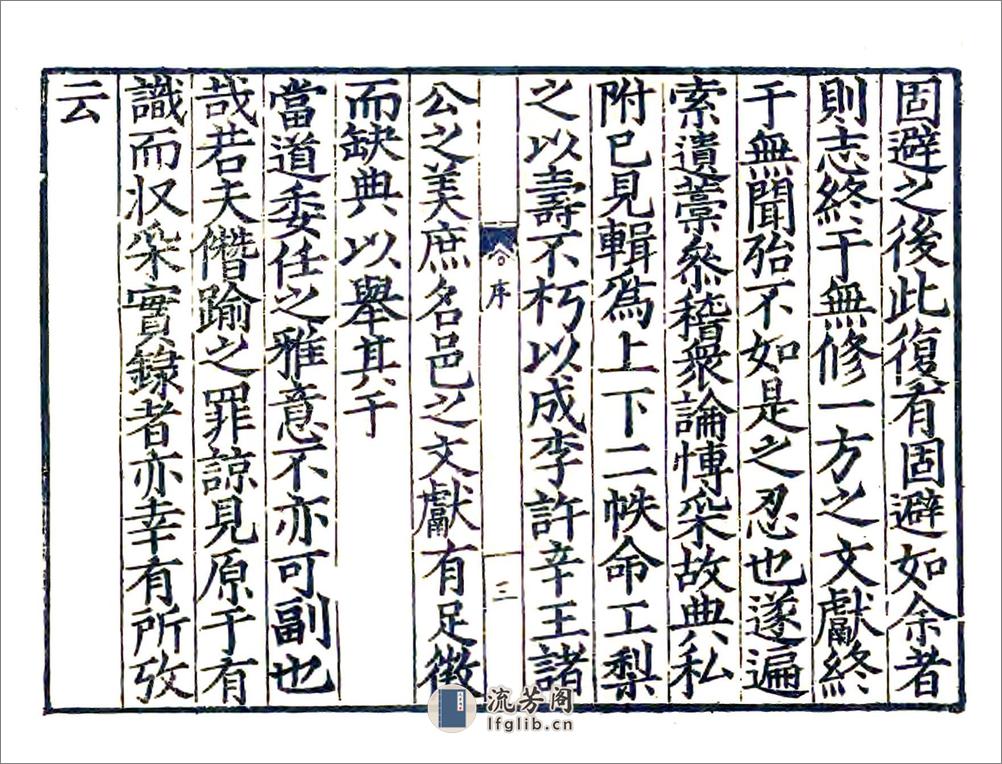 固避之後此復有固避如余者
則志終于無修一方之文獻終
于無聞殆不如是之忍也遂遍
索遺藁叅稽衆論博采故典私
附已見輯爲上下二帙命工梨
之以壽不朽以成李許辛王諸
序
三
公之美庶名邑之文獻有足徴
而缺典以舉其于
當道委任之雅意不亦可副也
哉若夫僭踰之罪諒見原于有
識而収采實錄者亦幸有所攷
云
流芳阁
lfglib.cn